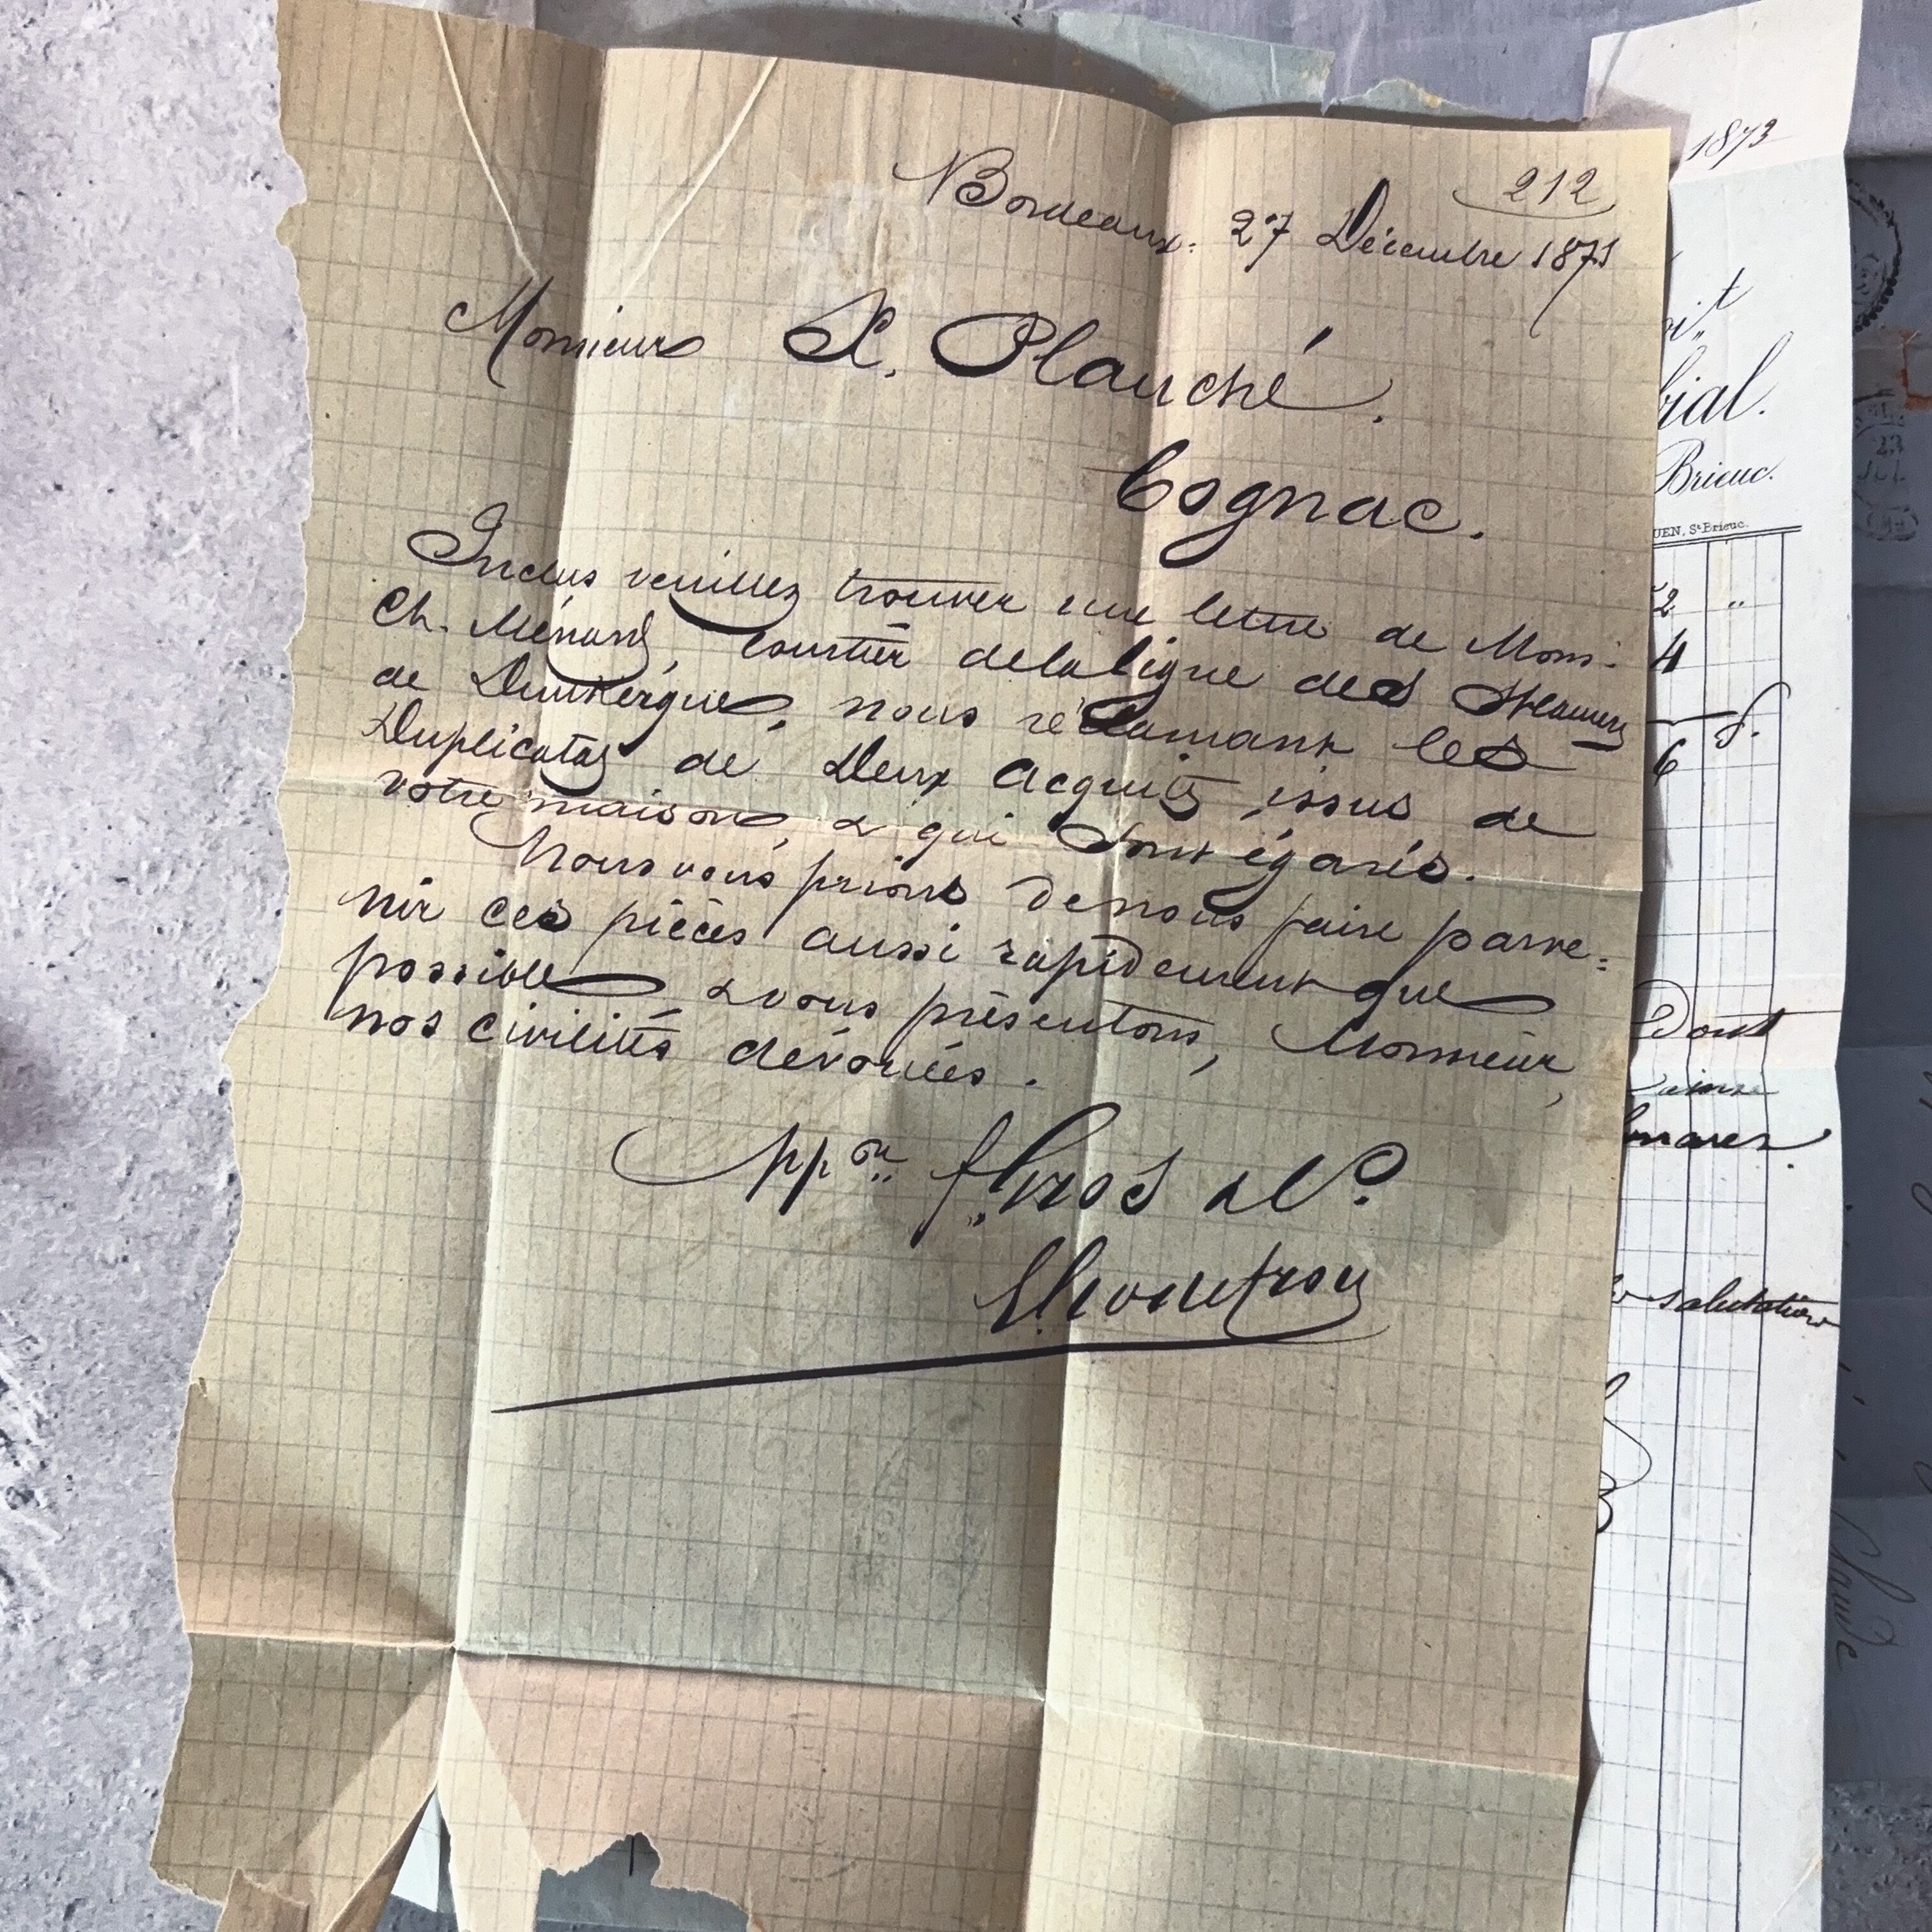 212
Bordeaux. 27 Décembre 1871
Monsieur L. Planché.
Cognac.
Inclus veuillez trouver une lettre de Mons:
Ch. Ménard, courtier de la ligne des Steamers
de Dunkerque, nous réclamant les
Duplicatas de Deux acquits issus de
votre maison, & qui sont égarés.
Nous vous prions de nous faire parve=
nir ces pièces aussi rapidement que
possible, & vous présentons, Monsieur,
nos civilités dévouées.
ppon Gros & Co.
1873
oit
bial.
Brieuc.
UEN, St Brieuc.
2 "
4
6
Dont
salutations
23